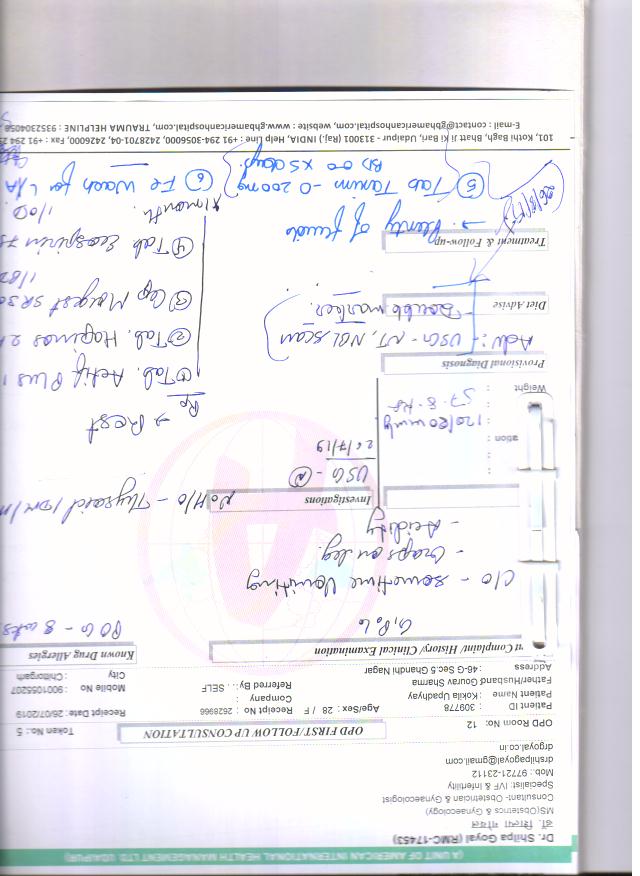 (A UNIT OF AMERICAN INTERNATIONAL HEALTH MANAGEMENT LTD. UDAIPUR)
Dr. Shilpa Goyal (RMC-17453)
डॉ. शिल्पा गोयल
MS(Obstetrics & Gynaecology)
Consultant- Obstetrician & Gynaecologist
Specialist: IVF & Infertility
Mob.: 97721-23112
drshilpagoyal@gmail.com
drgoyal.co.in
OPD Room No: 12
OPD FIRST/FOLLOW UP CONSULTATION
Token No.: 5
Patient ID : 309778
Age/Sex : 28 / F Receipt No : 2628966
Receipt Date : 26/07/2019
Patient Name : Kokila Upadhyay
Company :
Mobile No : 9001055207
Father/Husband Gourav Sharma
Referred By... SELF
City : Chittorgarh
Address : 46-G Sec.5 Ghandhi Nagar
Complaint/ History/ Clinical Examination
Known Drug Allergies
G1P0L0
POG - 8 wks
C/O - sometime Vomiting
- Craps on leg.
- Acidity
Investigations
No H/O - Thyroid / DM /
USG - N
26/7/19
ation :
120/80 mmHg
Weight : 57.8 kg
Rx → Rest
Provisional Diagnosis
① Tab. Actif Plus 1
Adv:- USG - NT, NBL scan
Double marker.
② Tab. Hopinas 2
Diet Advise
③ Cap Maigest SR 30
1/OD
Treatment & Follow-up
④ Tab Ecosprin 75
1/OD
x 1 month
→ Plenty of fluids
⑤ Tab Tanim-O 200mg
BD x 5 days.
⑥ Fe Wash for L/A
26/8/19
101, Kothi Bagh, Bhatt Ji Ki Bari, Udaipur - 313001 (Raj.) INDIA, Help Line : +91 294-3056000, 2428701-04, 2426000, Fax : +91 294
E-mail : contact@gbhamericanhospital.com, website : www.gbhamericanhospital.com, TRAUMA HELPLINE : 9352304050